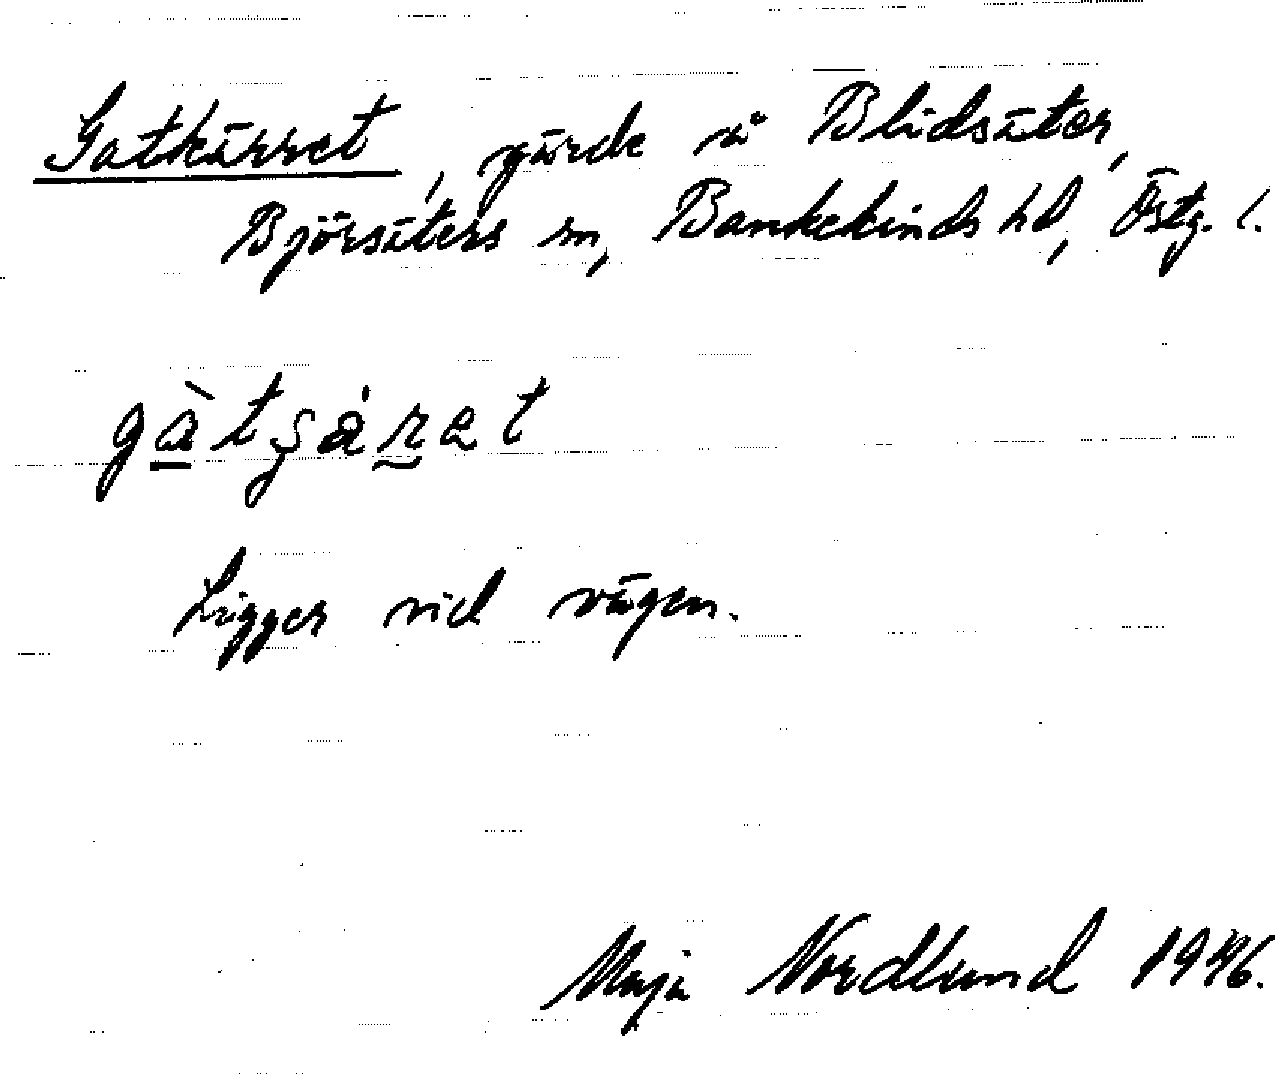 Gatkärret, gärde å Blidsäter,
Björsäters sn, Bankekinds hd, Östg. l.
gàtʂáret
Ligger vid vägen.
Maja Nordlund 1946.